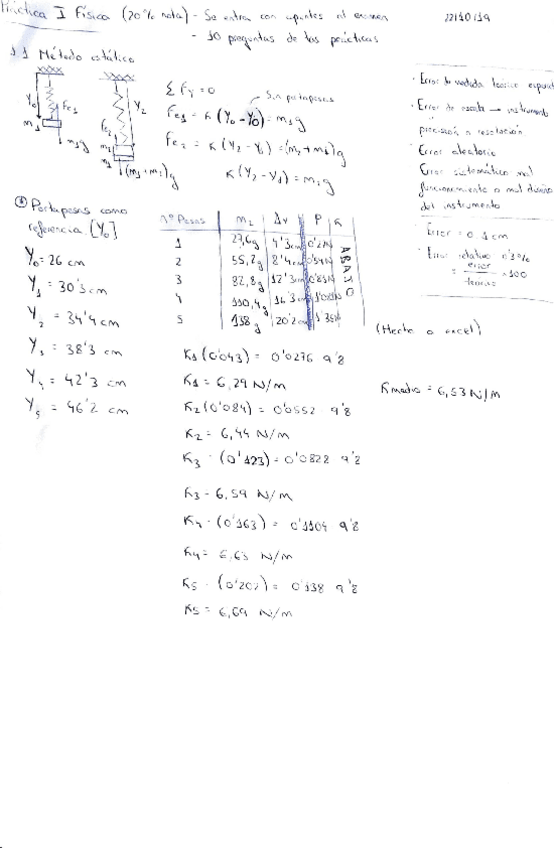 Práctica I Física (20% nota) - Se entra con apuntes al examen
- 10 preguntas de las prácticas
22/10/19
1.1 Método estático
Y₀
Fe₁
m₁
m₁g
Y₂
Fe₂
(m₁+m₂)g
ΣFy = 0
Sin portapesas
Fe₁ = K(Y₀ - Y0) = m₁g
Fe₂ = K(Y₂ - Y₀) = (m₂+m₁)g
K(Y₂ - Y₁) = m₂g
· Error de medida
· Error de escala → instrumento
precisión o resolución
· Error aleatorio
Error sistemático mal
funcionamiento o mal diseño
del instrumento
Error = 0'1 cm
Error relativo
= error × 100
Portapesas como
referencia [Y₀]
Y₀ = 26 cm
Y₁ = 30'3 cm
Y₂ = 34'4 cm
Y₃ = 38'3 cm
Y₄ = 42'3 cm
Y₅ = 46'2 cm
nº Pesas m₂ ΔY P K
1 27,6g 4'3cm
2 55,2g 8'4cm
3 82,8g 12'3cm
4 110,4g 16'3cm
5 138g 20'2cm
ABAJO
(Hecho a excel)
K₁(0'043) = 0'0276 9'8
K₁ = 6,29 N/m
K₂(0'084) = 0'0552 9'8
K₂ = 6,44 N/m
K₃ · (0'123) = 0'0828 9'8
K₃ = 6,59 N/m
K₄ · (0'163) = 0'1104 9'8
K₄ = 6,63 N/m
K₅ · (0'202) = 0'138 9'8
K₅ = 6,69 N/m
K medio = 6,53 N/m